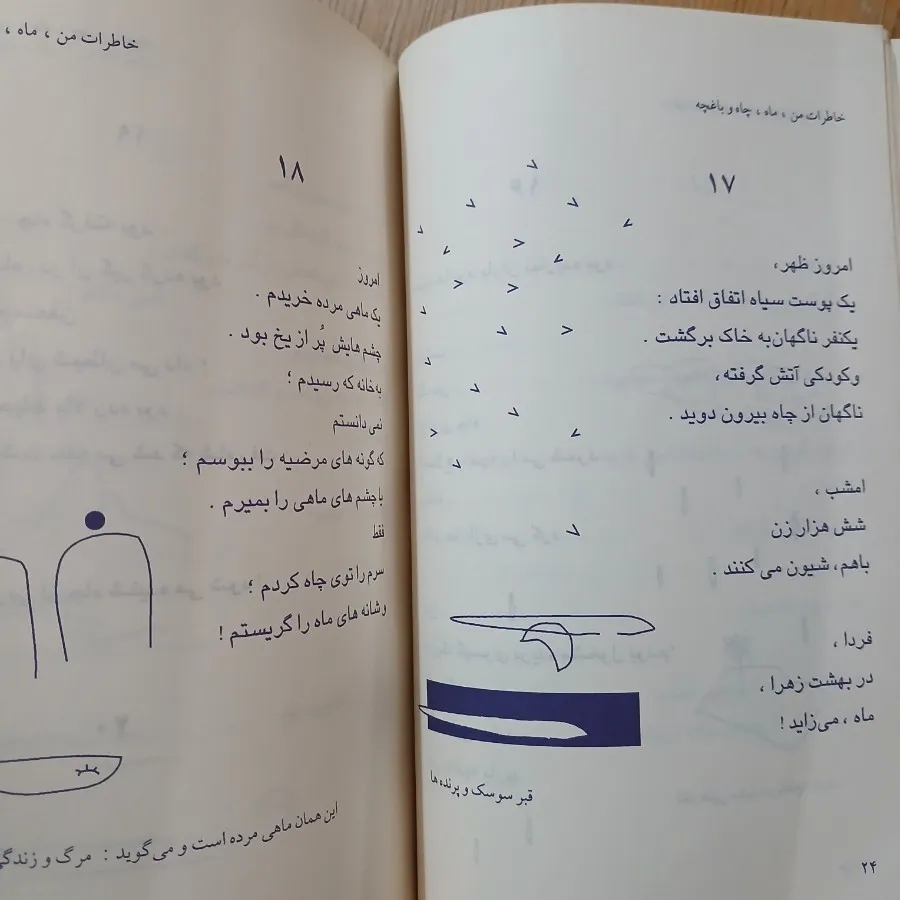 خاطرات من ، ماه ، چاه و باغچه
۱۷
امروز ظهر،
یک پوست سیاه اتفاق افتاد :
یکنفر ناگهان به خاک برگشت .
و کودکی آتش گرفته ،
ناگهان از چاه بیرون دوید .
امشب ،
شش هزار زن
باهم، شیون می کنند .
فردا ،
در بهشت زهرا ،
ماه ، می‌زاید !
قبر سوسک و پرنده ها
۲۴
خاطرات من ، ماه ،
۱۸
امروز
یک ماهی مرده خریدم .
چشم هایش پُر از یخ بود .
به خانه که رسیدم ؛
نمی دانستم
که گونه های مرضیه را ببوسم ؛
با چشم های ماهی را بمیرم .
فقط
سرم را توی چاه کردم ؛
و شانه های ماه را گریستم !
این همان ماهی مرده است و می‌گوید : مرگ و زندگی